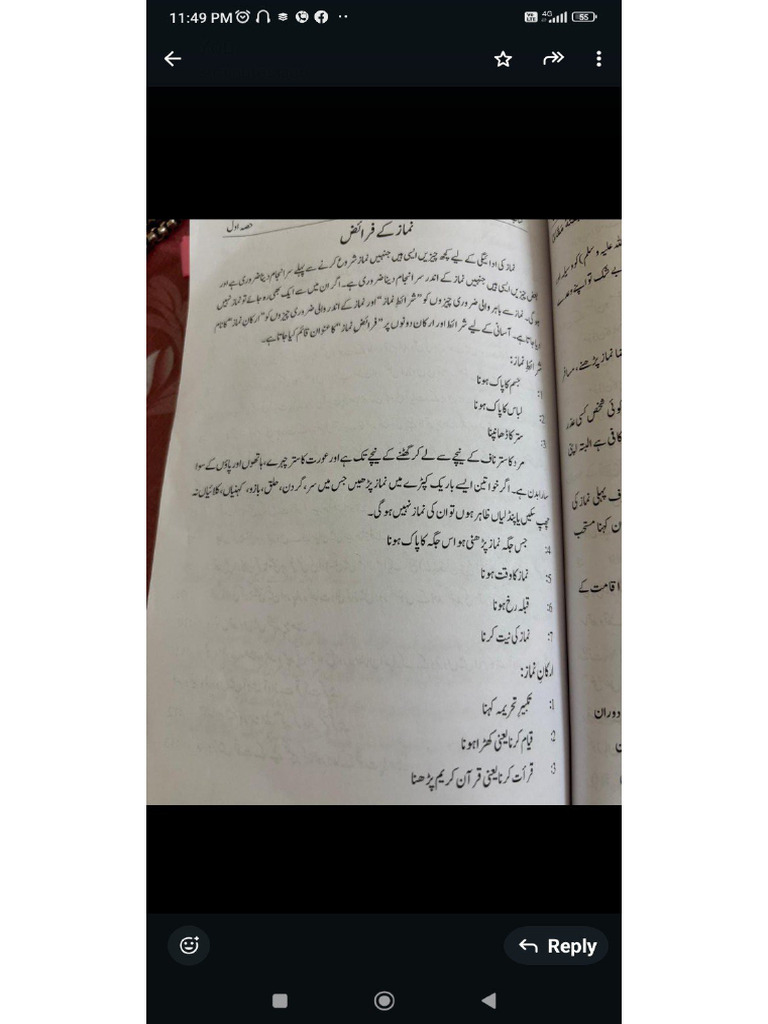 11:49 PM
4G
55
حصہ اول
نماز کے فرائض
نماز کی ادائیگی کے لیے کچھ چیزیں ایسی ہیں جنہیں نماز شروع کرنے سے پہلے سرانجام دینا ضروری ہے اور
بعض چیزیں ایسی ہیں جنہیں نماز کے اندر سرانجام دینا ضروری ہے۔ اگر ان میں سے ایک بھی رہ جائے تو نماز نہیں
ہوگی۔ نماز سے باہر والی ضروری چیزوں کو "شرائط نماز" اور نماز کے اندر والی ضروری چیزوں کو "ارکان نماز" کا نام
دیا جاتا ہے۔ آسانی کے لیے شرائط اور ارکان دونوں پر "فرائض نماز" کا عنوان قائم کیا جاتا ہے۔
شرائطِ نماز:
1: جسم کا پاک ہونا
2: لباس کا پاک ہونا
3: ستر کا ڈھانپنا
مرد کا ستر ناف کے نیچے سے لے کر گھٹنے کے نیچے تک ہے اور عورت کا ستر چہرے، ہاتھوں اور پاؤں کے سوا
سارا بدن ہے۔ اگر خواتین ایسے باریک کپڑے میں نماز پڑھیں جس میں سر، گردن، حلق، بازو، کہنیاں، کلائیاں نہ
چھپ سکیں یا پنڈلیاں ظاہر ہوں تو ان کی نماز نہیں ہوگی۔
4: جس جگہ نماز پڑھنی ہو اس جگہ کا پاک ہونا
5: نماز کا وقت ہونا
6: قبلہ رخ ہونا
7: نماز کی نیت کرنا
ارکانِ نماز:
1: تکبیرِ تحریمہ کہنا
2: قیام کرنا یعنی کھڑا ہونا
3: قرأت کرنا یعنی قرآن کریم پڑھنا
اللہ علیہ وسلم) کو وسیلہ اور
بے شک تو اپنے وعدے
نماز پڑھنے، مسافر
کوئی شخص کسی عذر
کافی ہے البتہ اپنی
ف پہلی نماز کی
ان کہنا مستحب
اقامت کے
دوران
Reply